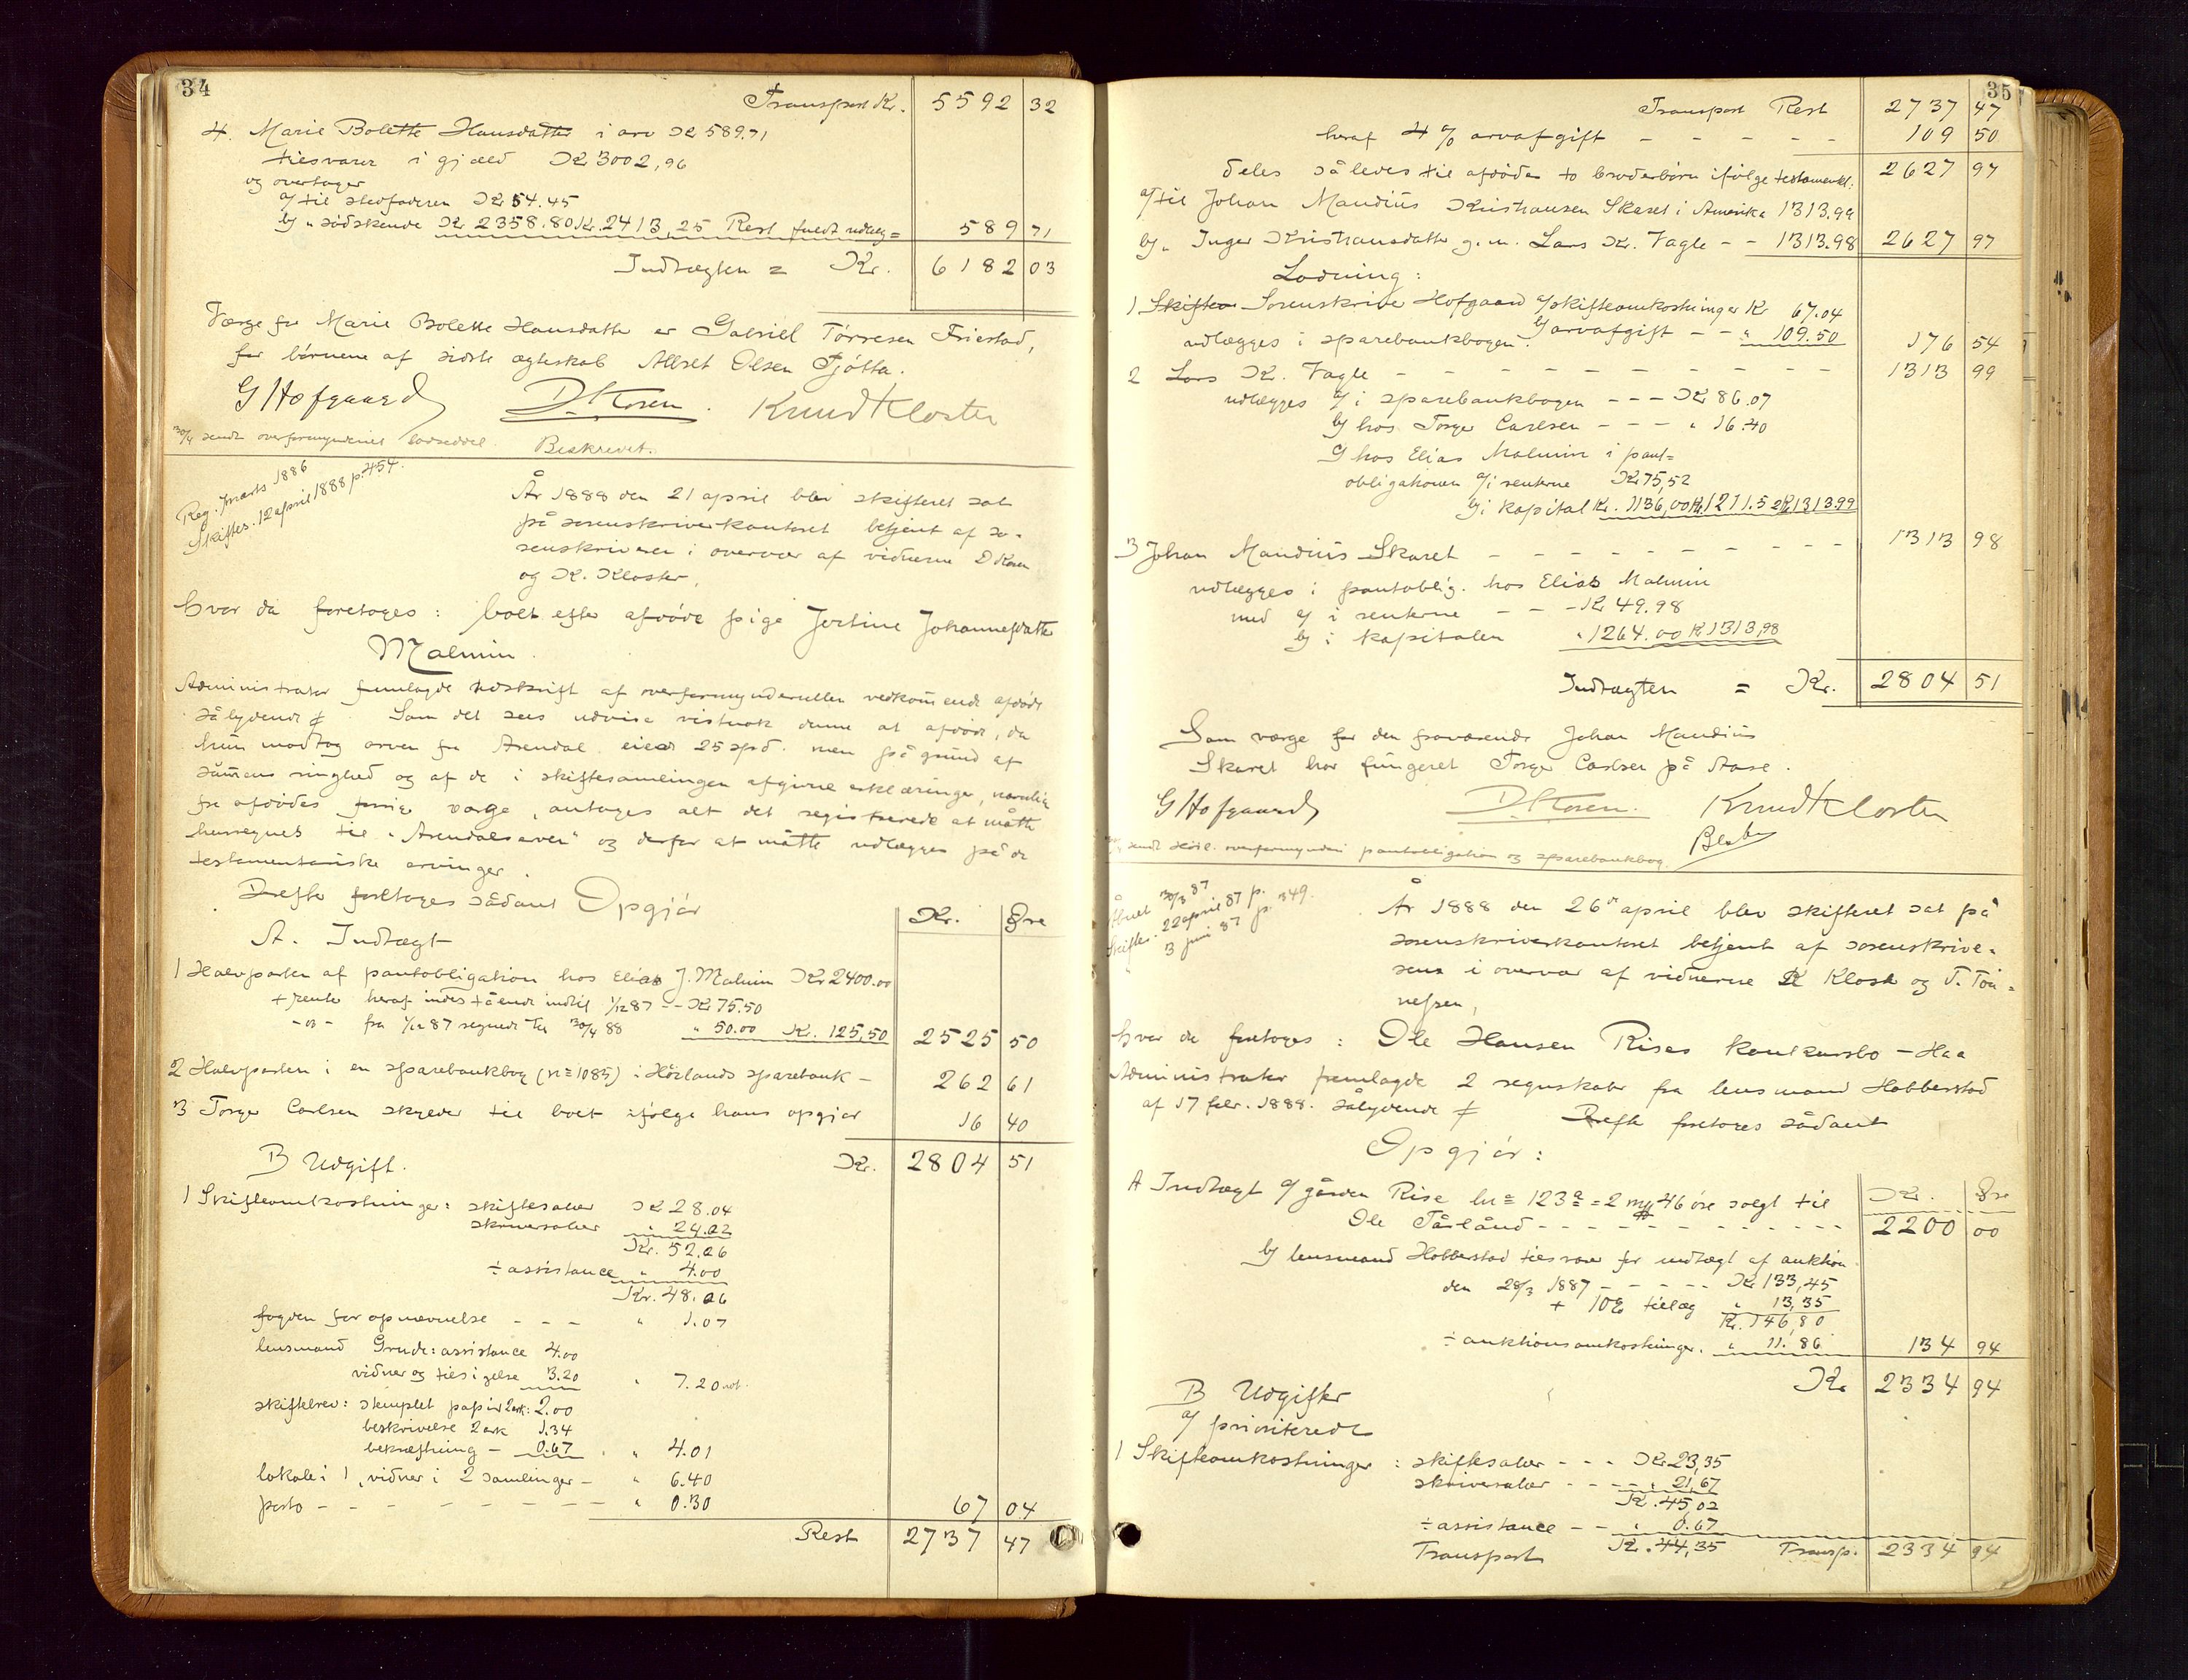 34
Transport Kr. 5592 32
4. Marie Bolette Hansdatter i arv Kr 589.71
tilsvarer i gjæld Kr 3002,96
og overtager
a/ til stedfaderen Kr 54.45
b/ " sødskende Kr 2358.80 Kr. 2413,25 Rest fuldt udlæg = 589 71
Indtægten = Kr. 6182 03
Værge for Marie Bolette Hansdatter er Gabriel Tørresen Friestad,
for børnene af sidste ægteskab Albret Olsen Tjøtta.
G Hofgaard D. Kosen. Knud Kloster
30/4 sendt overformynderiet lodseddel. Beskrevet.
Reg. 7 marts 1886
Skiftes. 12 april 1888 p. 454.
År 1888 den 21 april blev skifteret sat
på sorenskriverkontoret betjent af so-
renskriveren i overvær af vidnerne D Kosen
og K. Kloster,
hvor da foretoges: boet efter afdøde pige Jertine Johannesdatter
Malmin.
Administrator fremlagde udskrift af overformynderrullen vedkommende afdøde
sålydende ⌿. Som det sees udvise vistnok denne at afdøde, da
hun modtog arven fra Arendal eied 25 spd. men på grund af
summens ringhed og af de i skiftesamlingen afgivne erklæringer, navnlig
fra afdødes forrige værge, antages alt det registrerede at måtte
henregnes til "Arendalsarven" og derfor at måtte udlægges på de
testamentariske arvinger.
Derefter foretoges sådant Opgjør
Kr. Øre
A. Indtægt
1 Halvparten af pantobligation hos Elias J. Malmin Kr 2400.00
+ rente heraf indestående indtil 1/12 87 -- Kr 75.50
-"- fra 1/12 87 regnede til 30/4 88 " 50.00 Kr. 125,50 2525 50
2 Halvparten i en sparebankbog (nr 1085) i Hölands sparebank - 262 61
3 Torger Carlsen skylder til boet ifølge hans opgjør 16 40
B Udgift. Kr. 2804 51
1 Skifteomkostninger: skiftesalær Kr 28.04
skriversalær " 24.02
Kr. 52.06
÷ assistance " 4.00
Kr. 48.06
fogden for opnævnelse - - - " 1.07
lensmand Grude: assistance 4.00
vidner og tilsigelse 3.20 " 7.20
skiftebrev: stemplet papir 2 ark: 2.00
beskrivelse 2 ark 1.34
bekræftning - 0.67 " 4.01
lokale i 1, vidner i 2 samlinger - " 6.40
porto - - - - - - - - " 0.30 67 04
Rest 2737 47
35
Transport Rest 2737 47
heraf 4 % arvafgift - - - - - 109 50
deles således til afdødes to broderbørn ifølge testamentet: 2627 97
a/ til Johan Mandius Kristiansen Skaret i Amerika 1313.99
b/ " Inger Kristiansdatter g.m. Lars Kr. Vagle - - 1313.98 2627 97
Lodning:
1 Sorenskriver Hofgaard a/ skifteomkostninger Kr 67.04
b/ arvafgift - - " 109.50
udlægges i sparebankbogen. 176 54
2 Lars Kr. Vagle - - - - - - - - - - 1313 99
udlægges a/ i sparebankbogen - - - Kr 86.07
b/ hos Torger Carlsen - - - " 16.40
c/ hos Elias Malmin i pant=
obligationen a/ i renterne Kr 75,52
b/ i kapital Kr. 1136,00 Kr. 1211.52 Kr 1313.99
3 Johan Mandius Skaret - - - - - - - - 1313 98
udlægges i pantoblig. hos Elias Malmin
med a/ i renterne - - - Kr 49.98
b/ i kapitalen " 1264.00 Kr 1313,98
Indtægten = Kr. 2804 51
Som værge for den fraværende Johan Mandius
Skaret har fungeret Torger Carlsen på Aase.
G Hofgaard D. Kosen. Knud Kloster
sendt overformynderi pantobligation og sparebankbog.
30/3 87
Skiftes. 22 april 87 p.
" 3 juni 87 p. 349.
År 1888 den 26de april blev skifteret sat på
sorenskriverkontoret betjent af sorenskrive-
ren i overvær af vidnerne K Kloster og T. Tön-
nesen,
hvor da foretoges: Ole Hansen Rises konkursbo - Haa
Administrator fremlagde 2 regnskaber fra lensmand Hobberstad
af 17 febr. 1888. sålydende ⌿ Derefter foretoges sådant
Opgjør:
Kr. Øre
A Indtægt a/ gården Rise lnr 123a = 2 my 46 øre solgt til
Ole Tårland - - - - - - - - - - 2200 00
b/ lensmand Hobberstad tilsvarer for indtægt af auktion
den 28/3 1887 - - - - - Kr 133,45
+ 10% tillæg " 13,35
Kr. 146,80
÷ auktionsomkostninger. " 11.86 134 94
Kr 2334 94
B Udgifter
a/ prioriterede
1 Skifteomkostninger: skiftesalær - - - Kr. 23,35
skriversalær - - - - " 21,67
Kr. 45,02
÷ assistance - - " 0.67
Transport Kr. 44,35 Transp. 2334 94